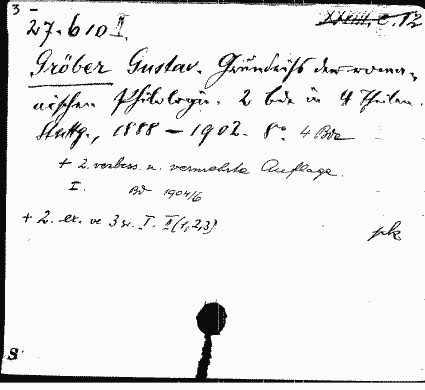 3
27.610 II. XXVIII. C. 12
Gröber Gustav. Grundriss der roma-
nischen Philologie. 2 Bde in 4 Theilen.
Stuttg., 1888 – 1902. 8° 4 Bde
+ 2. verbess. u. vermehrte Auflage.
I. Bd 1904/6
+ 2. ex. ve 3 I. II (1,2,3)
pk
S